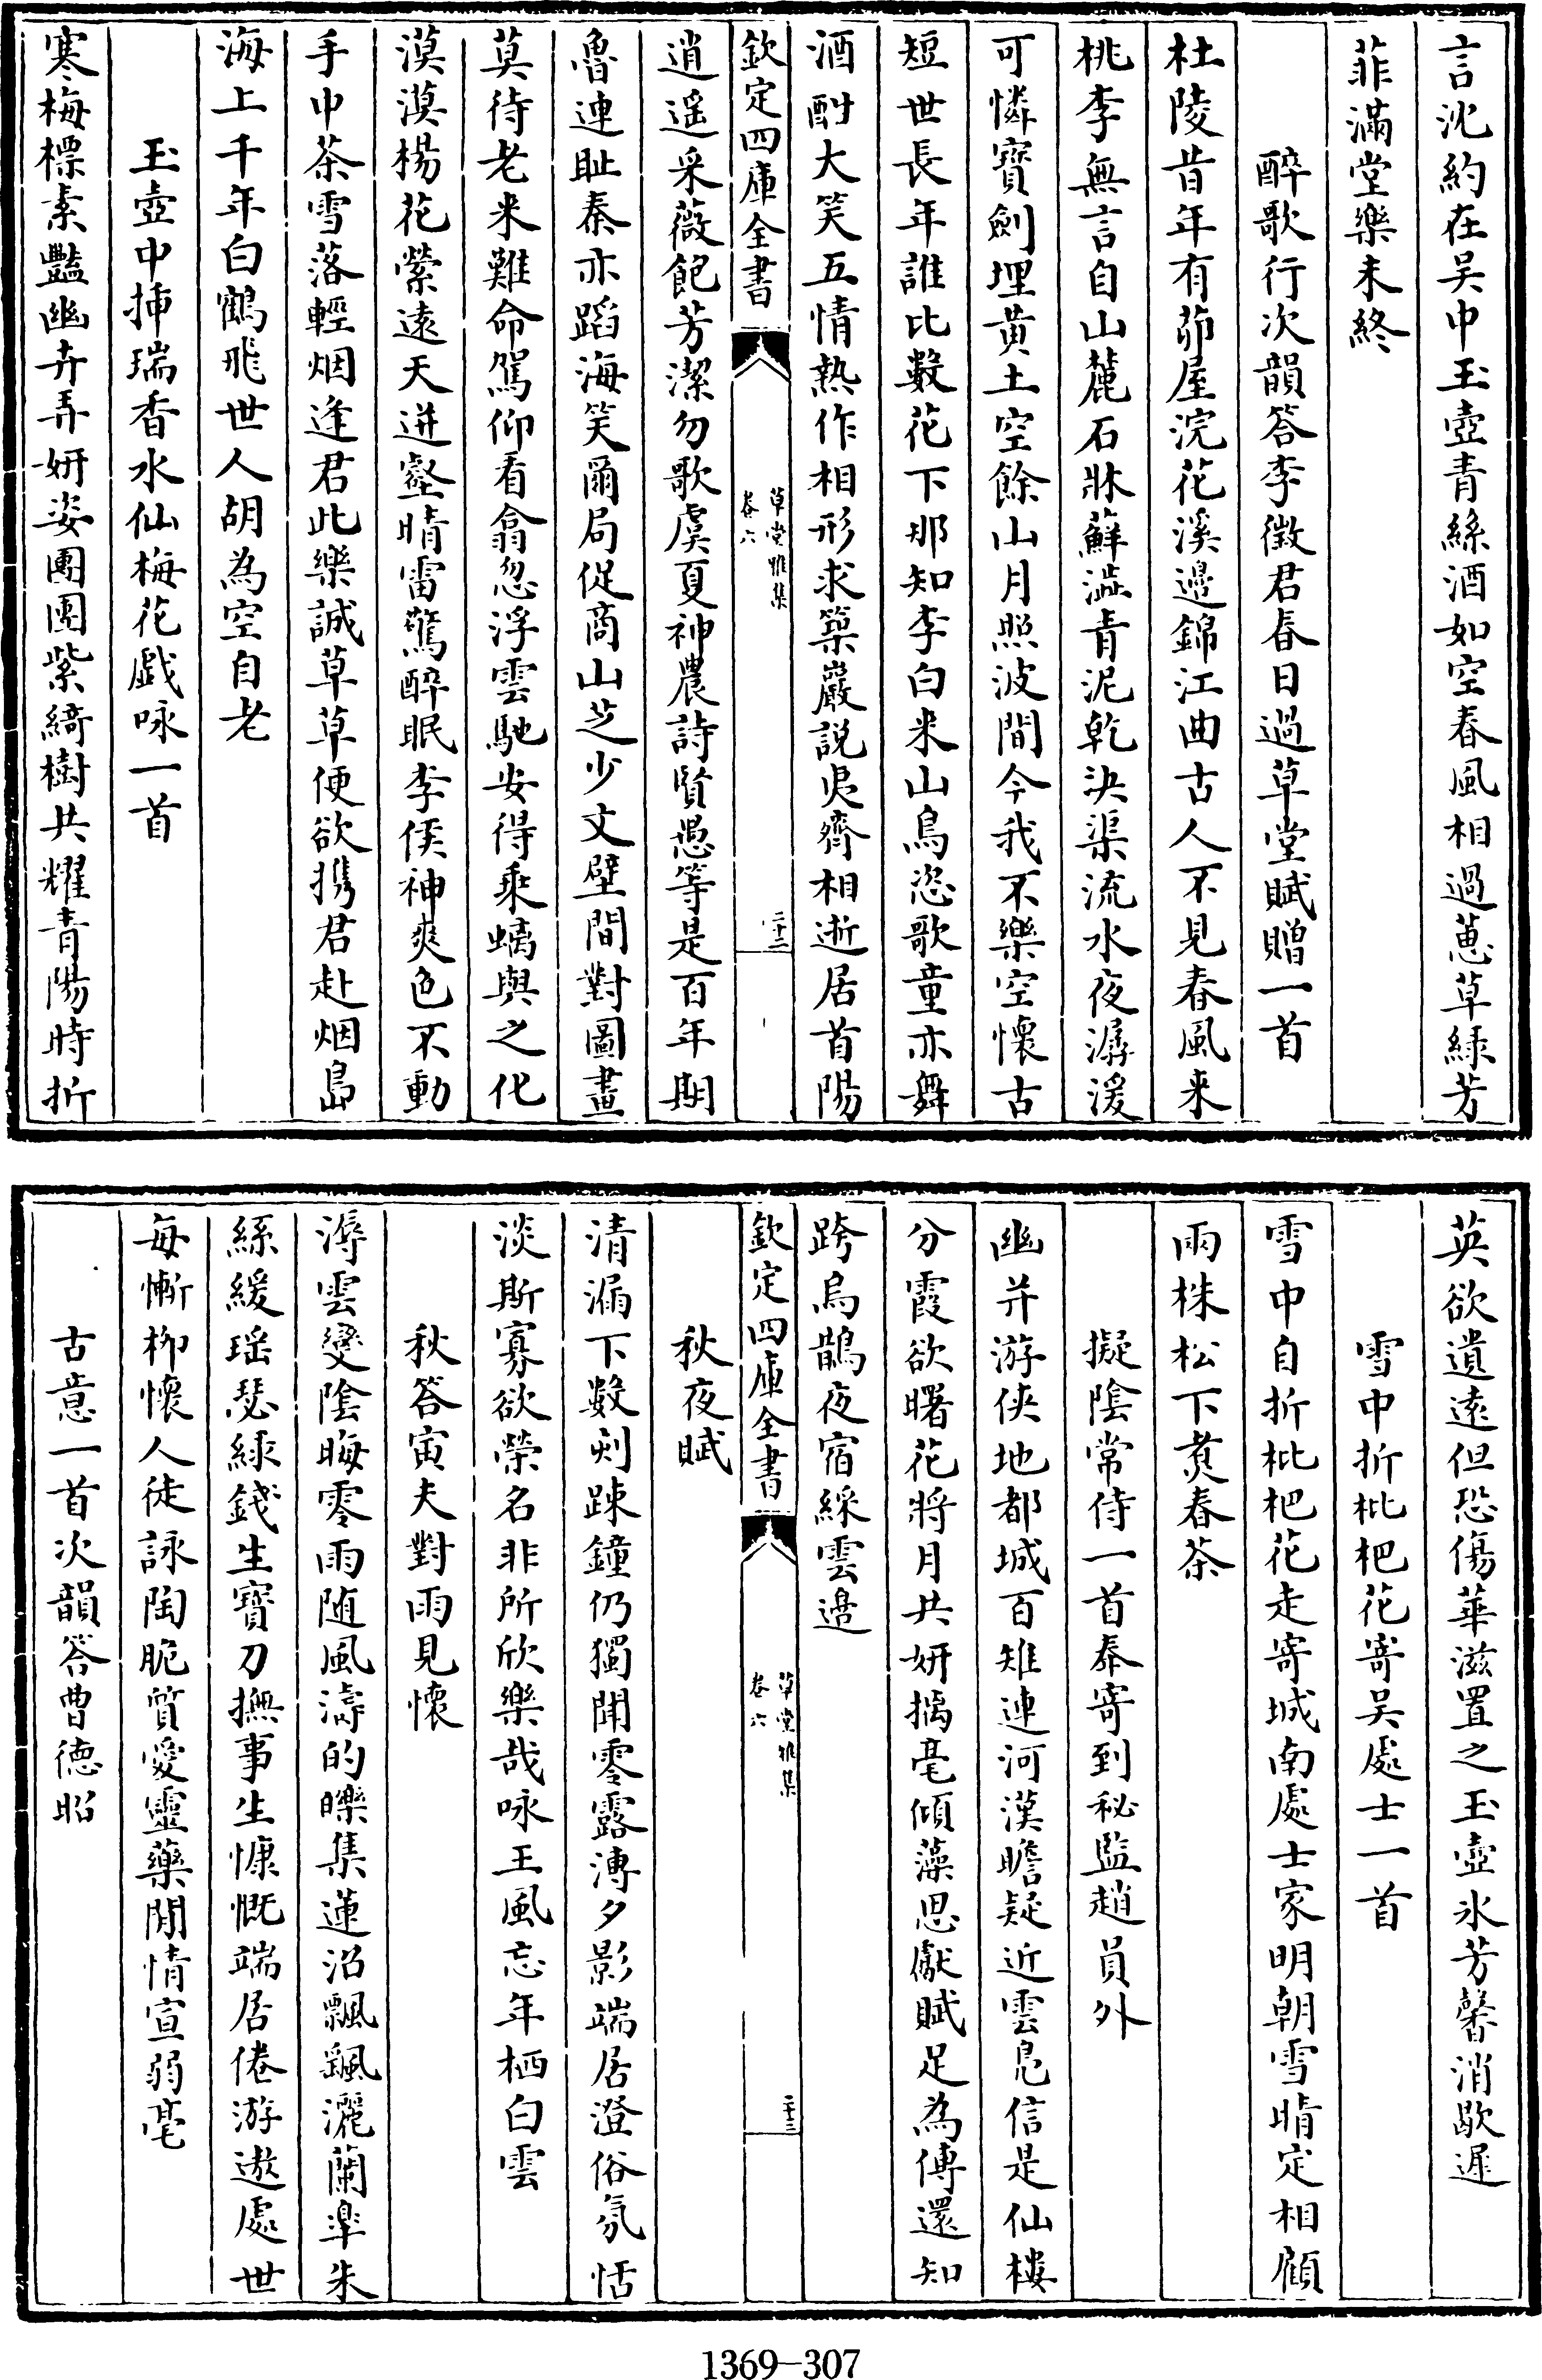 言沈約在吴中玉壺青絲酒如空春風相過蕙草緑芳
菲滿堂樂未終
醉歌行次韻答李徴君春日過草堂賦贈一首
杜陵昔年有茆屋浣花溪邊錦江曲古人不見春風来
桃李無言自山麓石牀蘚澁青泥乾決渠流水夜潺湲
可憐寳劍埋黄土空餘山月照波間今我不樂空懷古
短世長年誰比數花下那知李白来山鳥恣歌童亦舞
酒酣大笑五情熱作相形求築巖説夷齊相逝居首陽
欽定四庫全書
草堂雅集
卷六
二十二
逍遥采薇飽芳潔勿歌虞夏神農詩賢愚等是百年期
魯連耻秦亦蹈海笑爾局促商山芝少文壁間對圖畫
莫待老来難命駕仰看翕忽浮雲馳安得乘螭與之化
漠漠楊花縈遠天迸壑晴雷驚醉眠李侯神爽色不動
手中茶雪落輕烟逢君此樂誠草草便欲携君赴烟島
海上千年白鶴飛世人胡為空自老
玉壺中揷瑞香水仙梅花戲咏一首
寒梅標素豔幽卉弄妍姿團團紫綺樹共耀青陽時折
英欲遺遠但恐傷華滋置之玉壺氷芳馨消歇遲
雪中折枇杷花寄吴處士一首
雪中自折枇杷花走寄城南處士家明朝雪晴定相顧
兩株松下煮春茶
擬陰常侍一首奉寄到秘監趙員外
幽并游俠地都城百雉連河漢瞻疑近雲凫信是仙樓
分霞欲曙花將月共妍摛毫傾藻思獻賦足為傳還知
跨烏鵲夜宿綵雲邉
欽定四庫全書
草堂雅集
卷六
二十三
秋夜賦
清漏下數刻踈鐘仍獨聞零露漙夕影端居澄俗氛恬
淡斯寡欲榮名非所欣樂哉咏王風忘年栖白雲
秋答寅夫對雨見懷
溽雲變陰晦零雨随風濤的皪集蓮沼飄颻灑蘭臯朱
絲緩瑶瑟緑錢生寳刀撫事生慷慨端居倦游遨處世
每慚栁懷人徒詠陶脆質愛靈藥閒情宣弱毫
古意一首次韻答曹徳昭
1369—307